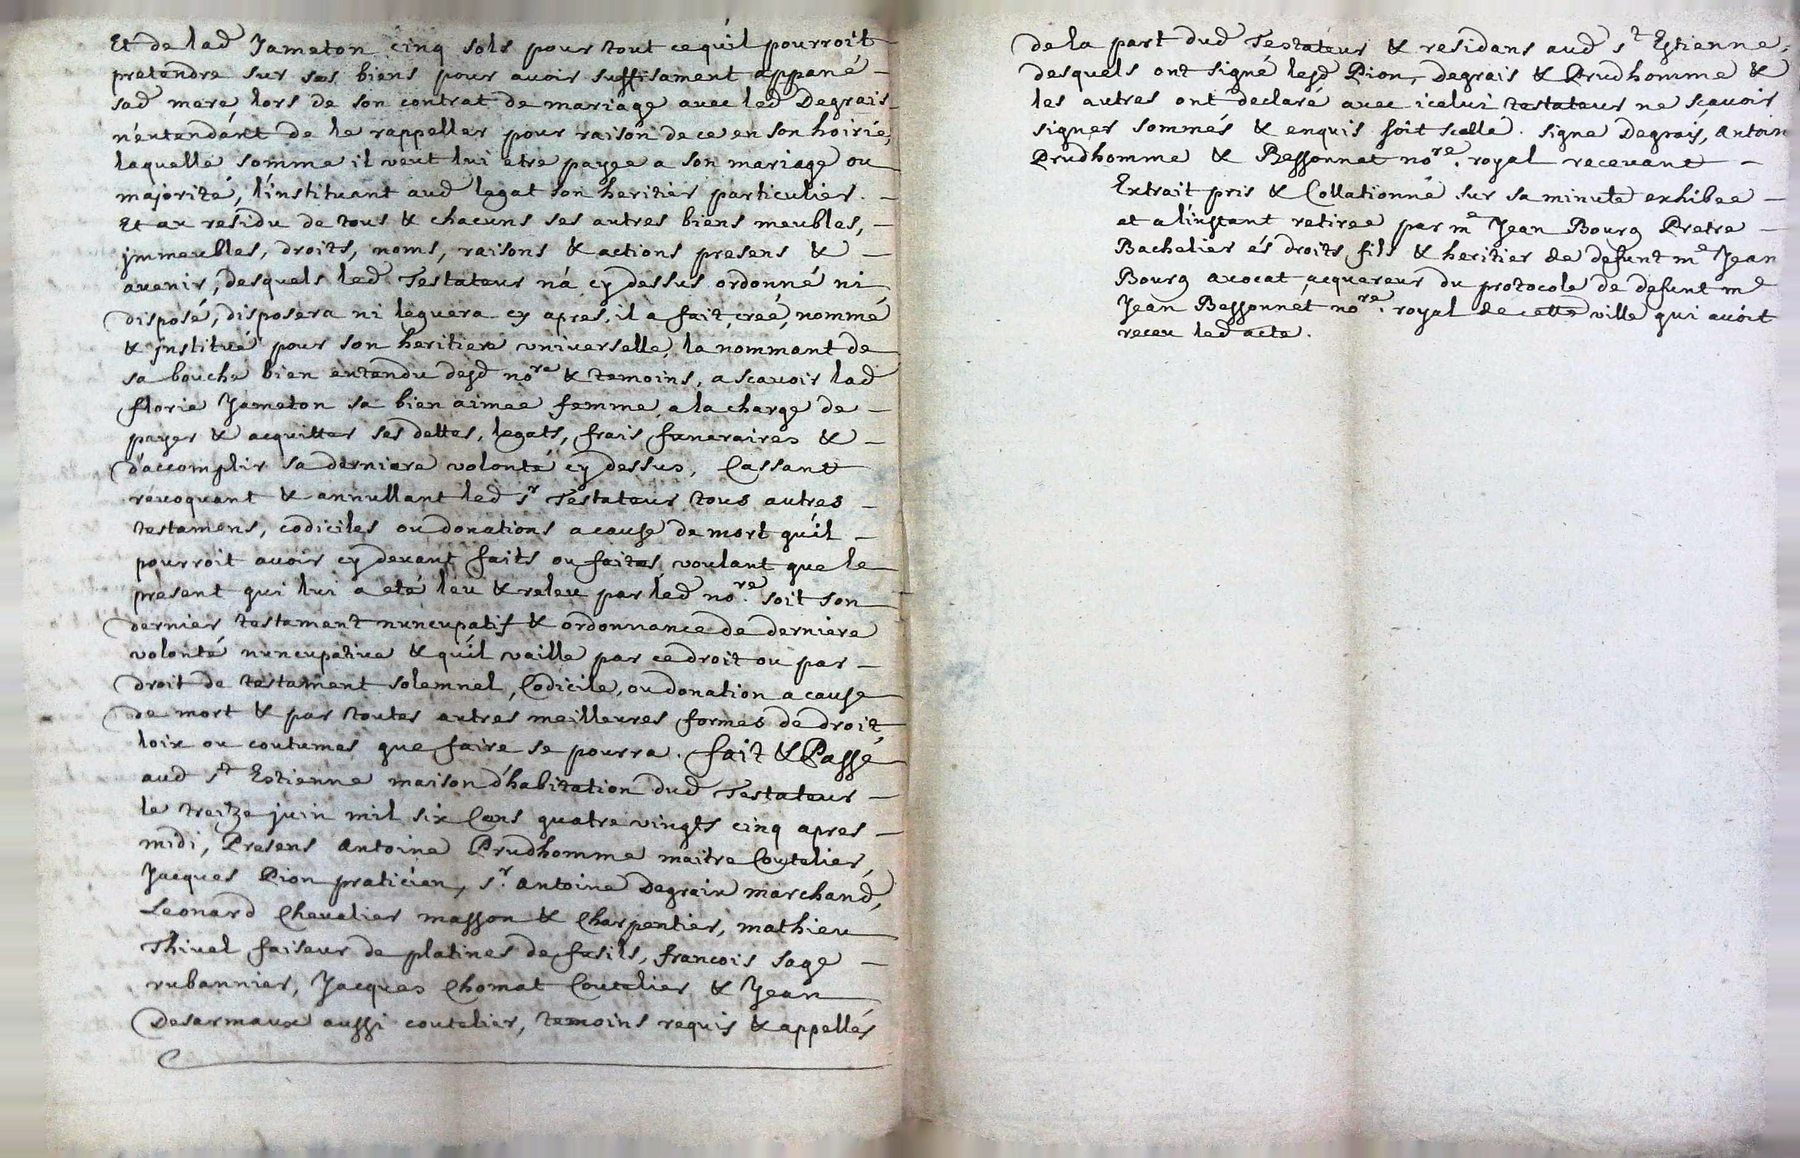 Et de lad Jameton cinq sols pour tout ce qu'il pourroit
pretendre sur ses biens pour avoir suffisament appané
sad mere lors de son contrat de mariage avec led Degrais
n'entendant de le rappeller pour raison de ce en son hoirie,
laquelle somme il veut lui etre payée a son mariage ou
majorité, l'instituant aud legat son heritier particulier.
Et au residu de tous & chacuns ses autres biens meubles,
jmmeubles, droits, noms, raisons & actions presens &
avenir, desquels led Testateur n'a cy dessus ordonné ni
disposé, disposera ni leguera cy apres, il a fait, créé, nommé
& jnstitué pour son heritiere vniverselle, la nommant de
sa bouche bien entendu desd nore & temoins, a scavoir lad
florie Jameton sa bien aimee femme, a la charge de
payer & acquitter ses dettes, legats, frais funeraires &
d'accomplir sa derniere volonté cy dessus, Cassant
revoquant & annullant led sr Testateur tous autres
testamens, codiciles ou donations a cause de mort qu'il
pourroit avoir cy devant faits ou faites, voulant que le
present qui lui a eté leu & releu par led nore. soit son
dernier testament nuncupatif & ordonnance de derniere
volonté nuncupative & qu'il vaille par ce droit ou par
droit de testament solemnel, Codicile, ou donation a cause
de mort & par toutes autres meilleures formes de droit,
loix ou coutumes que faire se pourra. fait & Passé
aud st Estienne maison d'habitation dud Testateur
le treitze juin mil six Cens quatre vingts cinq apres
midi, Presens Antoine Prudhomme maitre Coutelier,
Jacques Pion praticien, sr. Antoine Degraix marchand,
Leonard Chevalier masson & Charpentier, mathieu
Thivel faiseur de platines de fusils, francois sage
rubannier, Jacques Chomat Coutelier & Jean
Desarmaux aussi coutelier, temoins requis & appellés
de la part dud Testateur & residans aud st Estienne,
desquels ont signé lesd Pion, Degrais & Prudhomme &
les autres ont declaré avec icelui testateur ne scavoir
signer sommés & enquis soit scellé. signe Degrais, Antoin
Prudhomme & Bessonnet nore. royal recevant
Extrait pris & Collationné sur sa minute exhibee
et a l'instant retiree par me Jean Bourg Pretre
Bachelier és droits fils & heritier de defunt me Jean
Bourg avocat acquereur du protocole de defunt me
Jean Bessonnet nore. royal de cette ville qui avoit
receu led acte.